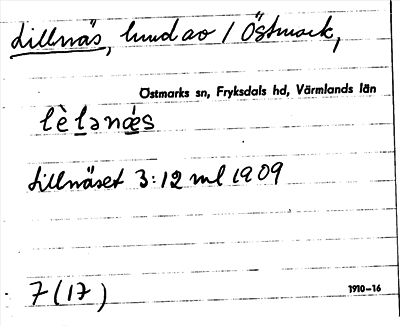 Lillnäs, lund av / Östmark,
Östmarks sn, Fryksdals hd, Värmlands län
lèlənǽs
Lillnäset 3:12 ml 1909
7(17)
1910–16